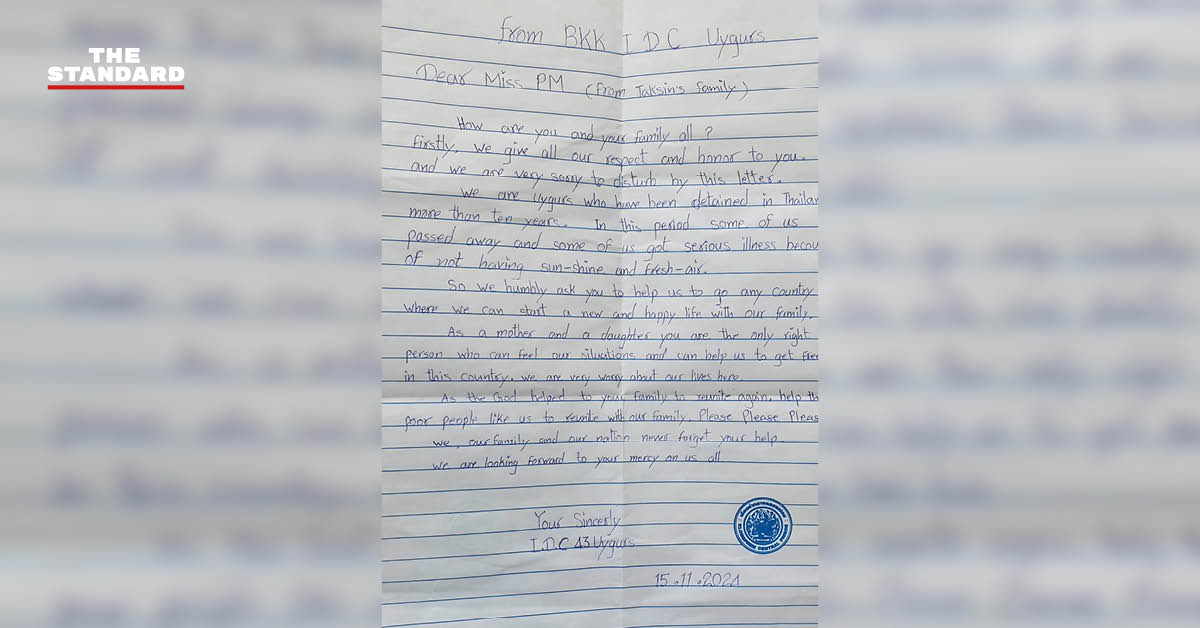 THE
STANDARD
from BKK IDC Uygurs
Dear Miss PM (from Taksin's family)
How are you and your family all ?
firstly, we give all our respect and honor to you.
and we are very sorry to disturb by this letter.
We are Uygurs who have been detained in Thailan
more than ten years. In this period some of us
passed away and some of us got serious illness becou
of not having sun-shine and fresh-air.
So we humbly ask you to help us to go any country
where we can start a new and happy life with our family.
As a mother and a daughter you are the only right
person who can feel our situations and can help us to get free
in this country. we are very worry about our lives here.
As the God helped to your family to reunite again, help th
poor people like us to reunite with our family. Please Please Pleas
we, our family and our nation never forget your help.
we are looking forward to your mercy on us all
Your Sincerly
I.D.C 43 Uygurs
15.11.2024